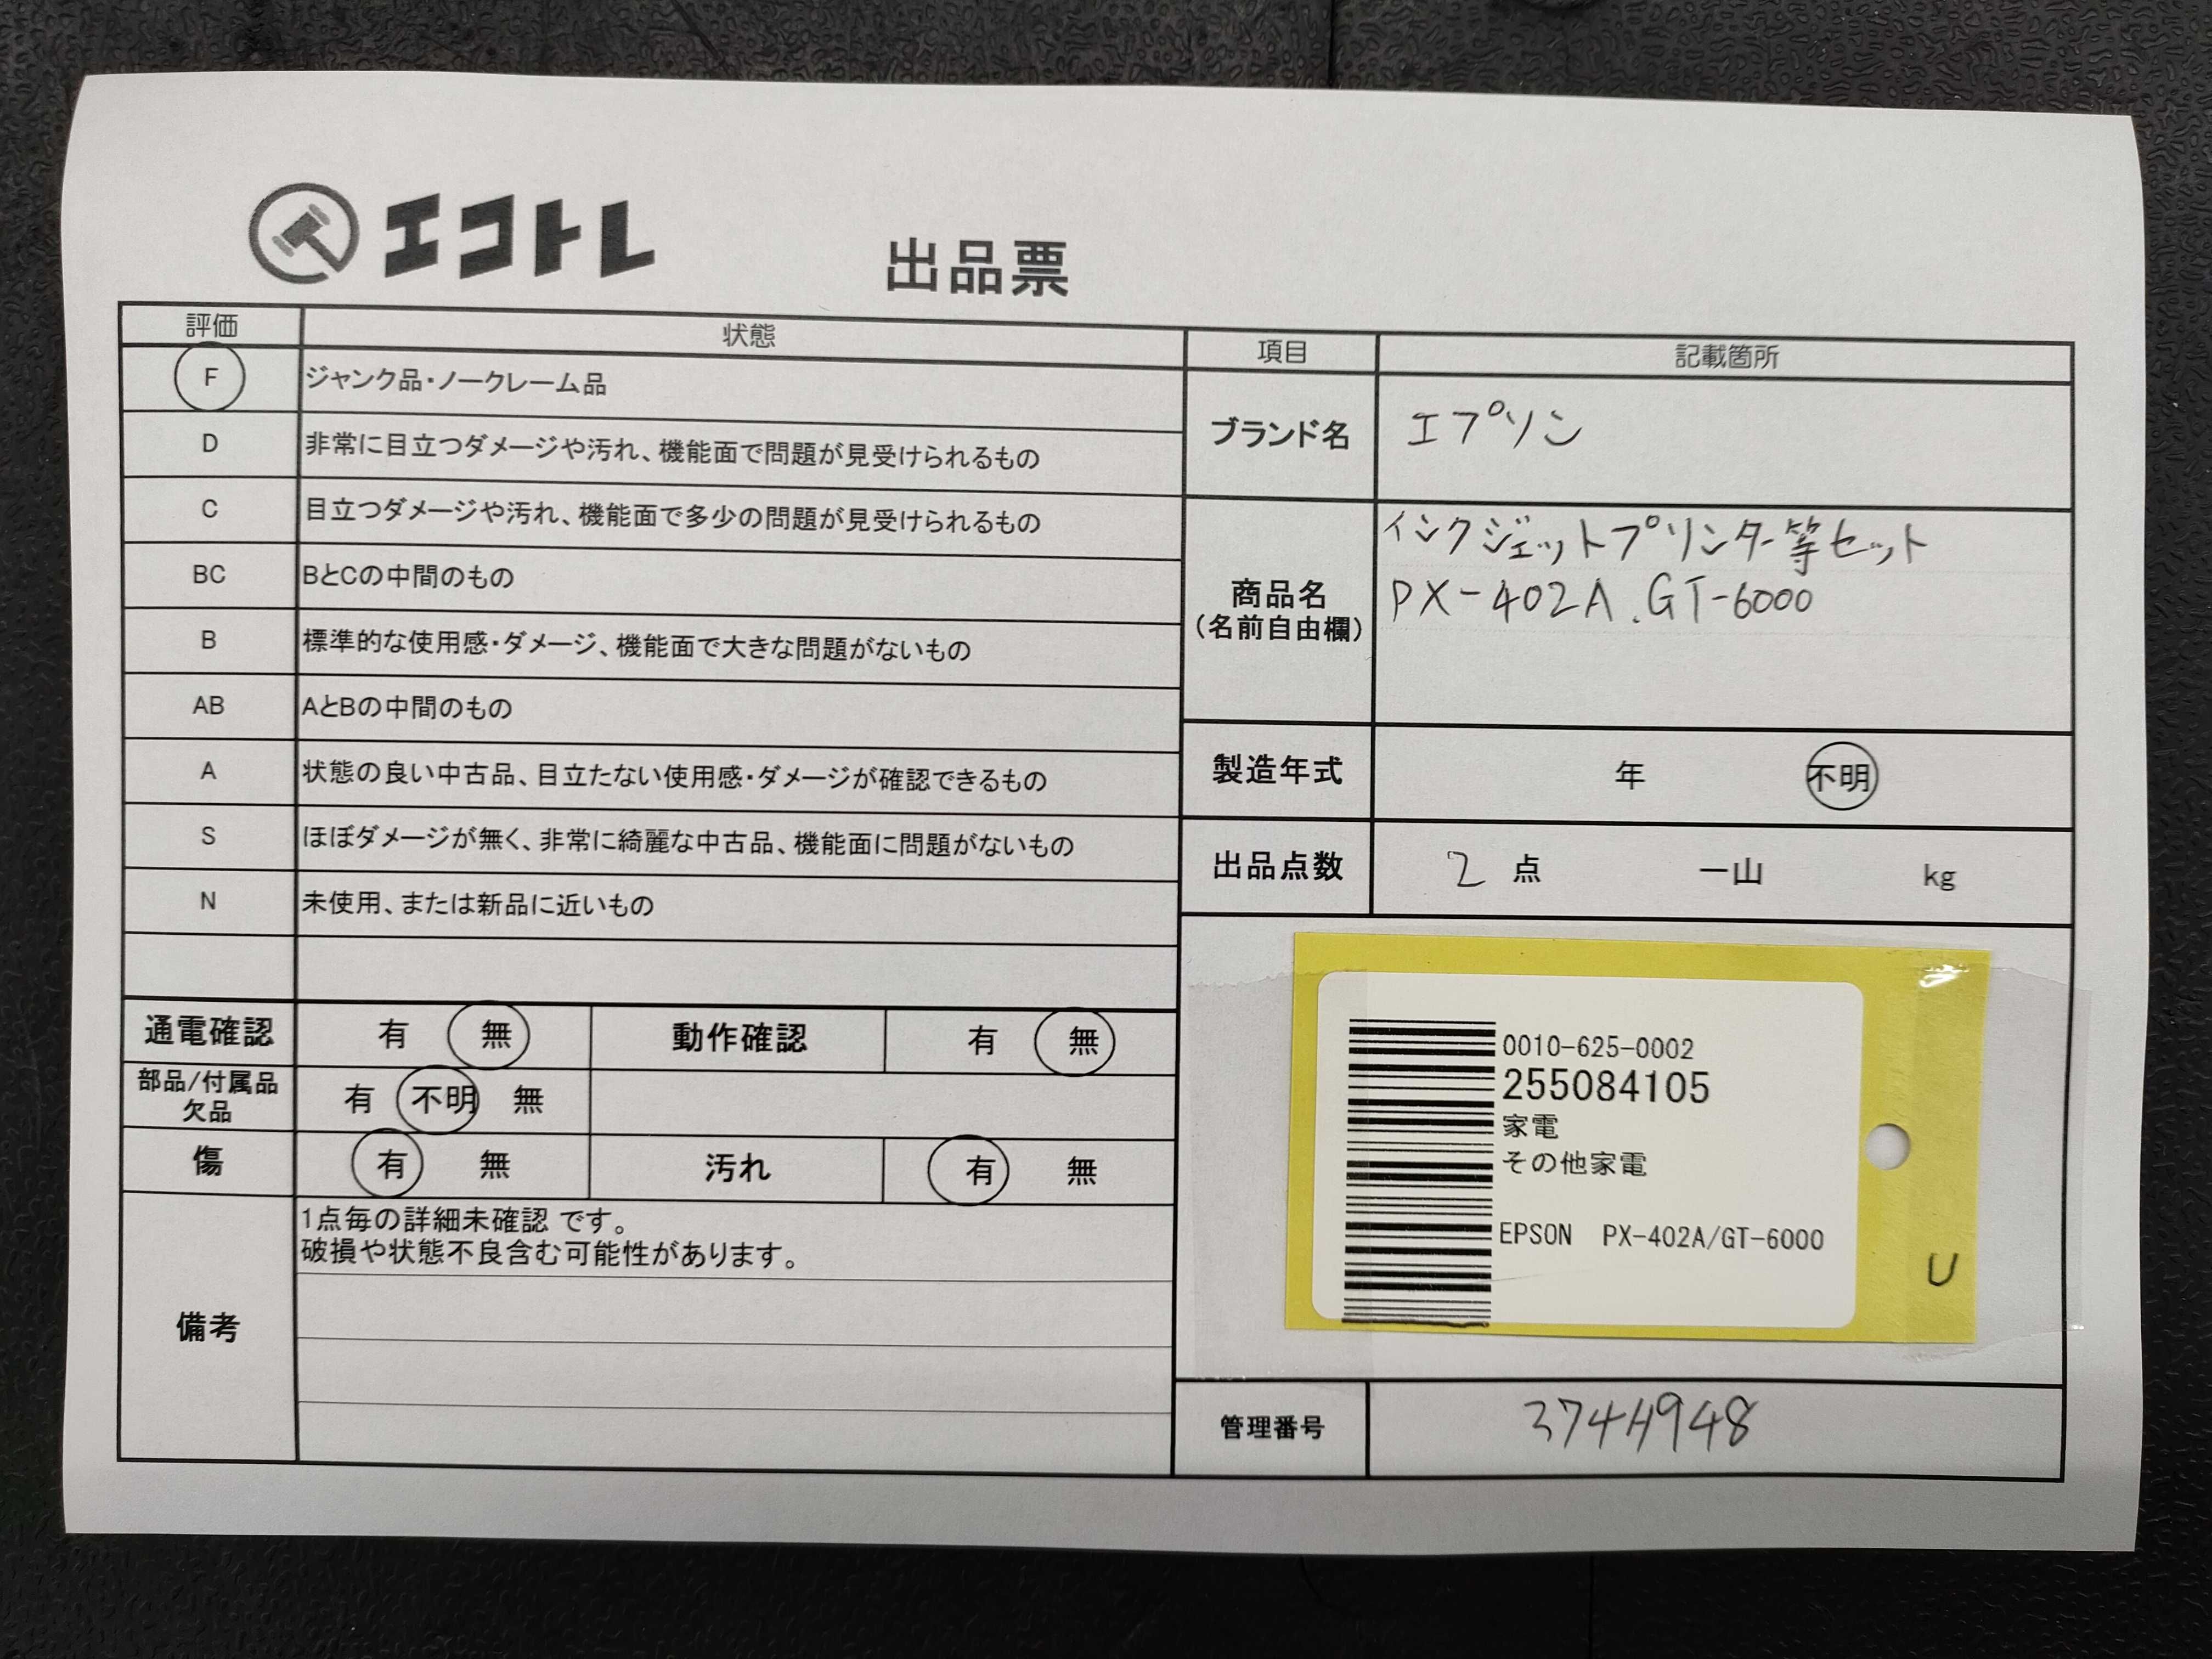 エコトレ
出品票
評価 状態
F ジャンク品・ノークレーム品
D 非常に目立つダメージや汚れ、機能面で問題が見受けられるもの
C 目立つダメージや汚れ、機能面で多少の問題が見受けられるもの
BC BとCの中間のもの
B 標準的な使用感・ダメージ、機能面で大きな問題がないもの
AB AとBの中間のもの
A 状態の良い中古品、目立たない使用感・ダメージが確認できるもの
S ほぼダメージが無く、非常に綺麗な中古品、機能面に問題がないもの
N 未使用、または新品に近いもの
通電確認 有 無 動作確認 有 無
部品/付属品
欠品 有 不明 無
傷 有 無 汚れ 有 無
備考
1点毎の詳細未確認 です。
破損や状態不良含む可能性があります。
項目 記載箇所
ブランド名 エプソン
商品名
(名前自由欄)
インクジェットプリンター等セット
PX-402A.GT-6000
製造年式 年 不明
出品点数 2 点 一山 kg
0010-625-0002
255084105
家電
その他家電
EPSON PX-402A/GT-6000
U
管理番号 374H948